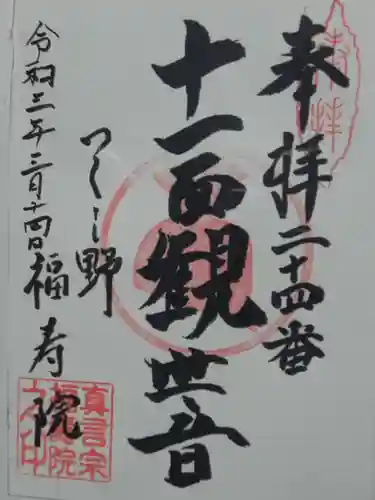 奉拝二十四番
十一面観世音
つくし野
福寿院
令和三年三月十四日
奉拝
真言宗
福寿院